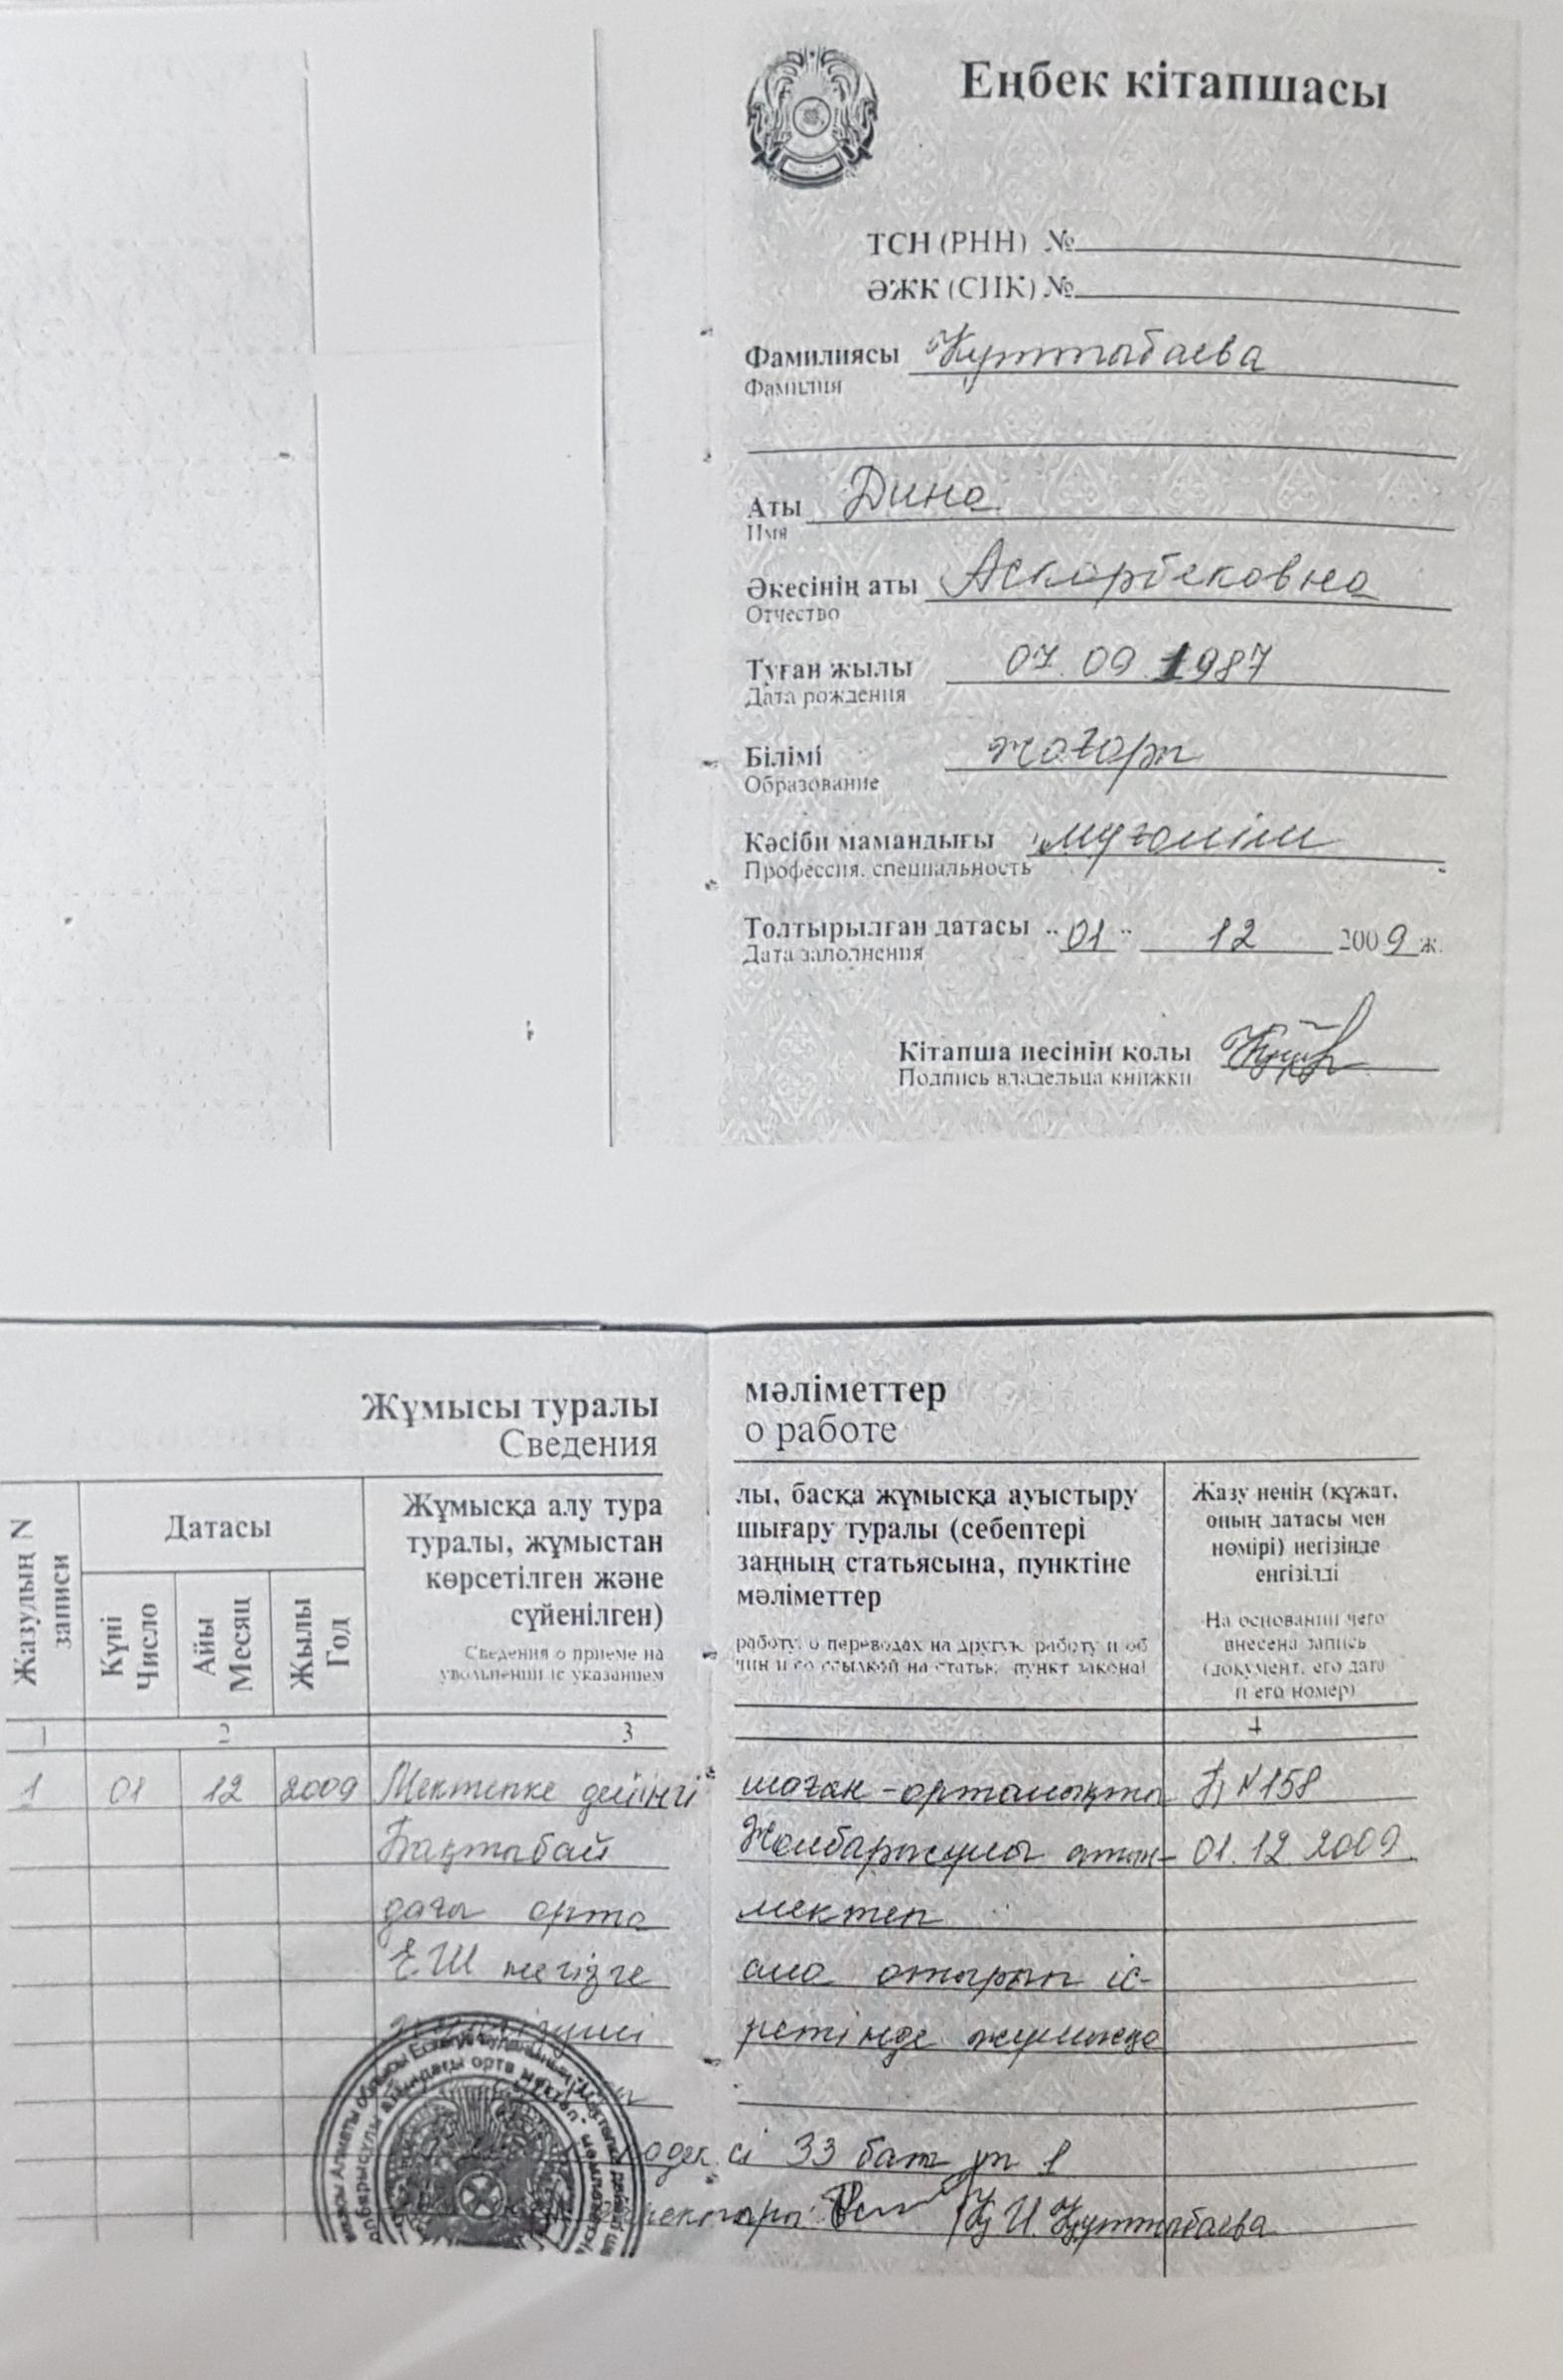 Еңбек кітапшасы
ТСН (РНН) №
ӘЖК (СИК) №
Фамилиясы Құттыбаева
Фамилия
Аты Дина
Имя
Әкесінің аты Аскарбековна
Отчество
Туған жылы 07.09.1987
Дата рождения
Білімі жоғары
Образование
Кәсіби мамандығы мұғалім
Профессия, специальность
Толтырылған датасы "01" 12 2009 ж.
Дата заполнения
Кітапша иесінің қолы
Подпись владельца книжки
Жұмысы туралы мәліметтер
Сведения о работе
Жазудың N
записи
Датасы
Күні
Число
Айы
Месяц
Жылы
Год
Жұмысқа алу тура лы, басқа жұмысқа ауыстыру
туралы, жұмыстан шығару туралы (себептері
көрсетілген және заңның статьясына, пунктіне
сүйенілген) мәліметтер
Сведения о приеме на работу, о переводах на другую работу и об
увольнении (с указанием чин и со ссылкой на статью, пункт закона)
Жазу ненің (құжат,
оның датасы мен
нөмірі) негізінде
енгізілді
На основании чего
внесена запись
(документ, его дата
и его номер)
1 2 3 4
1 01 12 2009 Мектепке дейінгі шағын-орталықта Б N158
Бақтыбай Жолбарысұлы атын- 01.12.2009
дағы орта мектеп
ЕШ негізге ала отырып іс-
ретінде жұмысқа
кодексі 33 бап 1
директоры: Құттыбаева